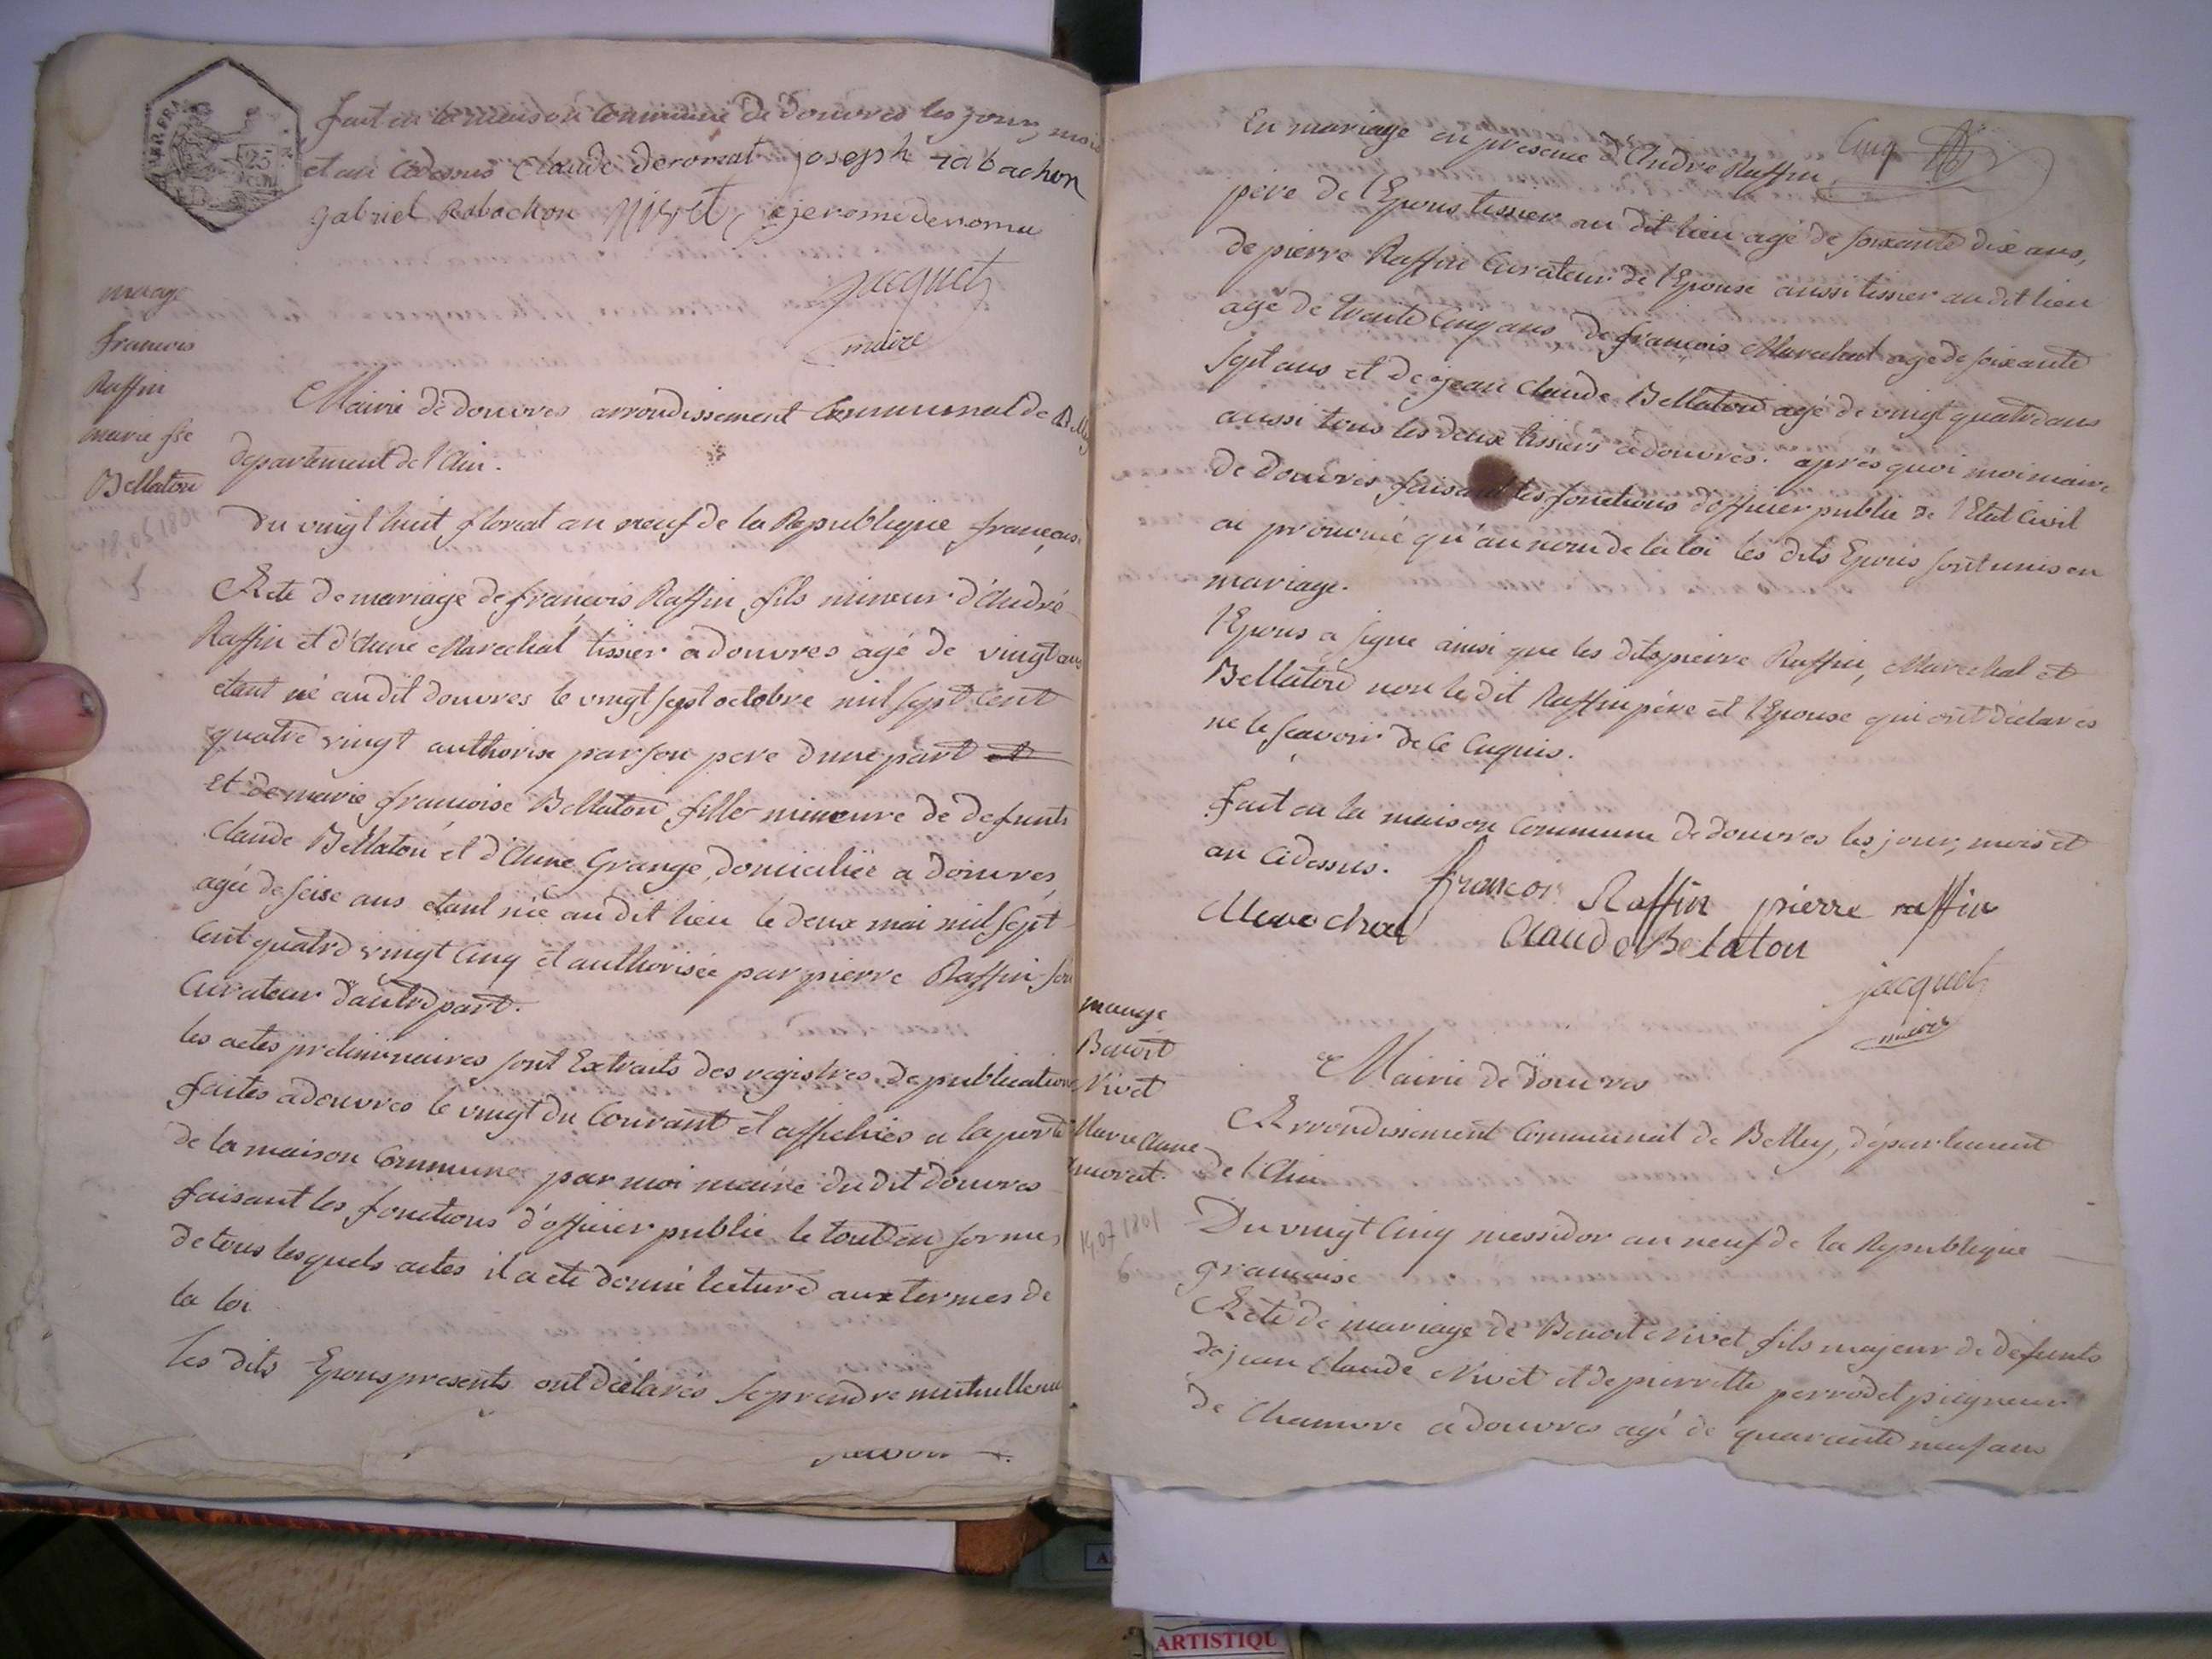 fait en la maison Commune de douvres les jour, mois
et an Cidessus Claude deromat joseph rabachon
gabriel Rabachon nivet jerome deroma
jacquet
maire
mariage
francois
Raffin
marie fse
Bellaton
Mairie de douvres arrondissement Communal de Belley
departement de l'Ain.
Du vingt huit floreal an neuf de la Republique francaise
Acte de mariage de françois Raffin fils mineur d'André
Raffin et d'Anne Marechal tissier a douvres agé de vingt ans
etant né au dit douvres le vingt sept octobre mil sept Cent
quatre vingt authorisé par son pere d'une part et
et de marie francoise Bellaton fille mineure de defunts
Claude Bellaton et d'Anne Grange, domiciliée a douvres
agée de seise ans etant née au dit lieu le deux mai mil sept
Cent quatre vingt Cinq et authorisée par pierre Raffin son
Curateur d'autre part.
les actes preliminaires sont Extraits des registres de publications
faites a douvres le vingt du Courant et affichées a la porte
de la maison Commune par moi maire du dit douvres
faisant les fonctions d'officier public le tout en forme,
de tous lesquels actes il a eté donné lecture aux termes de
la loi
les dits Epous presents ont déclarés se prendre mutuellement
Cinq
En mariage en presence d'André Raffin
père de l'Epous tissier au dit lieu agé de soixante dix ans,
de pierre Raffin Curateur de l'Epouse aussi tissier au dit lieu
agé de trente Cinq ans, de françois Marechal agé de soixante
sept ans et de jean Claude Bellaton agé de vingt quatre ans
aussi tous les deux tissiers a douvres. après quoi moi maire
de douvres faisant les fonctions d'officier public de l'Etat Civil
ai prononcé qu'au nom de la loi les dits Epous sont unis en
mariage.
l'Epous a signe ainsi que les dits pierre Raffin, Marechal et
Bellaton non le dit Raffin père et l'Epouse qui ont déclarés
ne le sçavoir de ce Enquis.
fait en la maison Commune de douvres les jour, mois et
an Cidessus. francois Raffin pierre raffin
Marechal Claude Belaton
jacquet
maire
mariage
Benoit
Nivet
Marie Anne
14.07 1801
6
Mairie de douvres
Arrondissement Communal de Belley, département
de l'Ain
Du vingt Cinq messidor an neuf de la Republique
francaise
Acte de mariage de Benoit Nivet, fils majeur de defunts
de jean Claude Nivet et de pierrette perrodet peigneur
de Chanvre a douvres agé de quarante neuf ans
ARTISTIQU